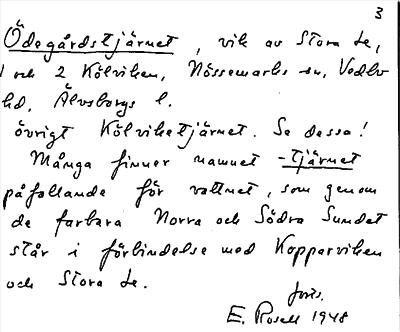 3
Ödegårdstjärnet, vik av Stora Le,
1 och 2 Kölviken, Nössemarks sn, Vedbo
hd, Älvsborgs l.
övrigt Kölviketjärnet. Se dessa!
Många finner namnet -tjärnet
påfallande för vattnet, som genom
de farbara Norra och Södra Sundet
står i förbindelse med Kopparviken
och Stora Le.
forts.
E. Rosell 1948